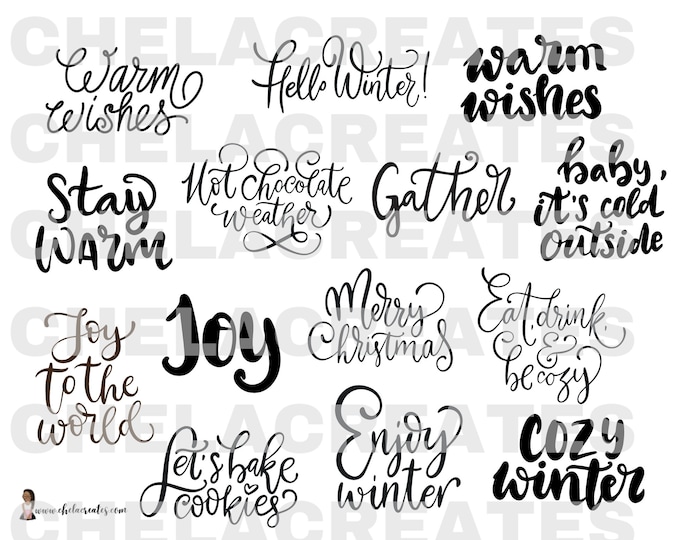 CHELACREATES
Warm
wishes
Hello Winter!
warm
wishes
CHELACREATES
Stay
WARM
Hot Chocolate
weather
Gather
baby,
it's cold
outside
CHELACREATES
CHELACREATES
Joy
to the
world
JOY
Merry
Christmas
Eat, drink,
&
be cozy
CHELACREATES
Let's bake
cookies
Enjoy
winter
COZY
winter
www.chelacreates.com
CHELACREATES